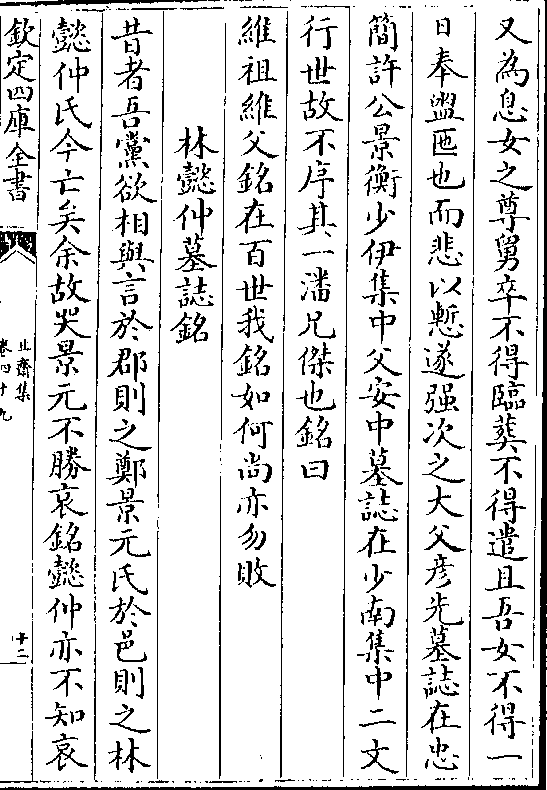 又為息女之尊舅卒不得臨葬不得遣且吾女不得一
日奉盥匜也而悲以慙遂强次之大父彦先墓誌在忠
簡許公景衡少伊集中父安中墓誌在少南集中二文
行世故不序其一潘兄傑也銘曰
維祖維父銘在百世我銘如何尚亦勿敗
林懿仲墓誌銘
昔者吾黨欲相與言於郡則之鄭景元氏於邑則之林
懿仲氏今亡矣余故哭景元不勝哀銘懿仲亦不知哀
欽定四庫全書
止齋集
卷四十九
十二